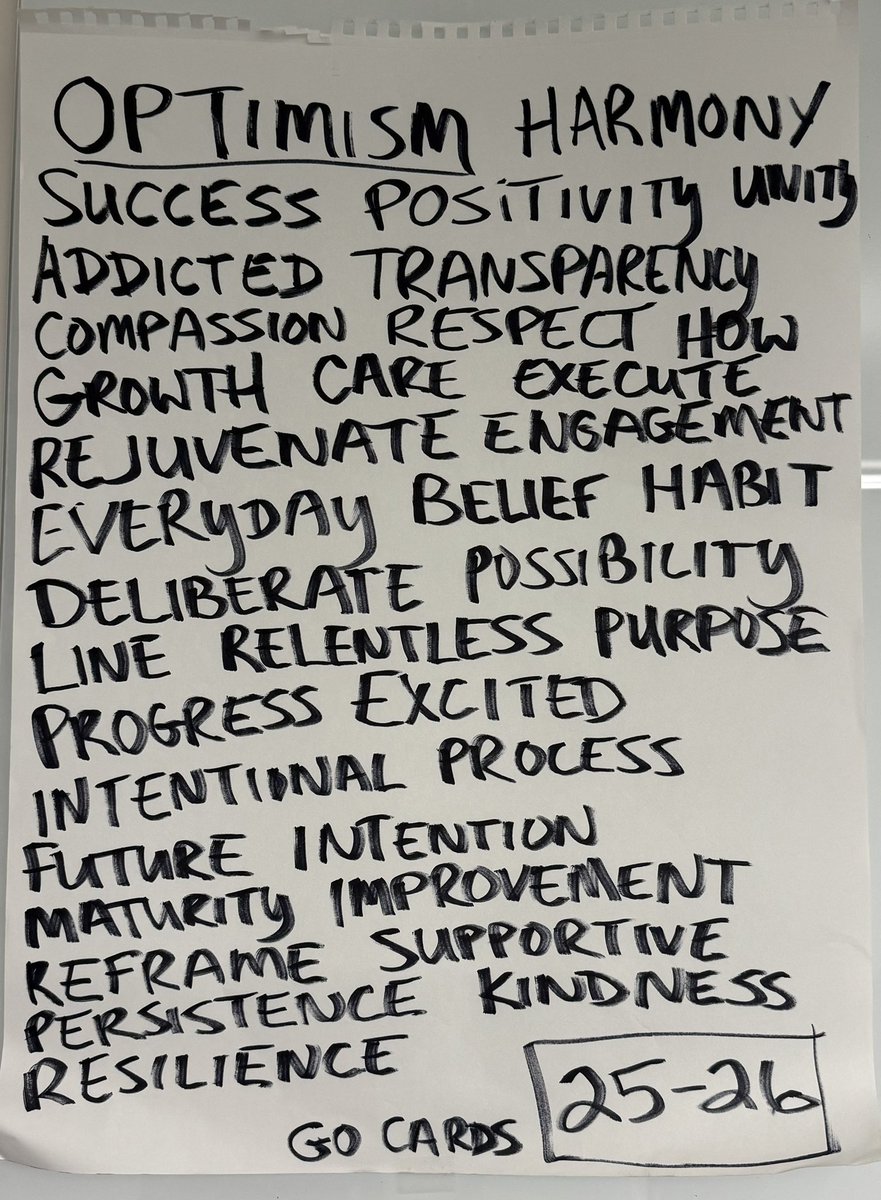 OPTIMISM HARMONY
SUCCESS POSITIVITY UNITY
ADDICTED TRANSPARENCY
COMPASSION RESPECT HOW
GROWTH CARE EXECUTE
REJUVENATE ENGAGEMENT
EVERYDAY BELIEF HABIT
DELIBERATE POSSIBILITY
LINE RELENTLESS PURPOSE
PROGRESS EXCITED
INTENTIONAL PROCESS
FUTURE INTENTION
MATURITY IMPROVEMENT
REFRAME SUPPORTIVE
PERSISTENCE KINDNESS
RESILIENCE
GO CARDS 25-26